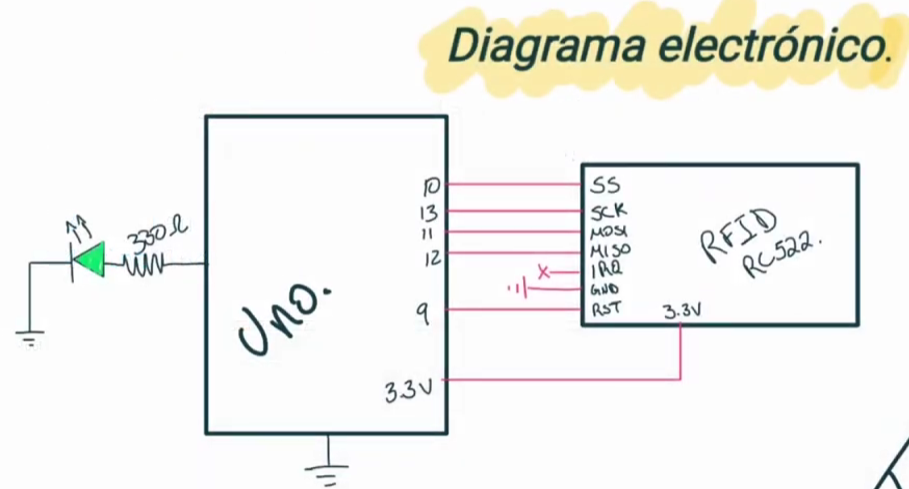 Diagrama electrónico.
330Ω
Uno.
10
13
11
12
9
3.3V
SS
SCK
MOSI
MISO
IRQ
GND
RST
3.3V
RFID
RC522.